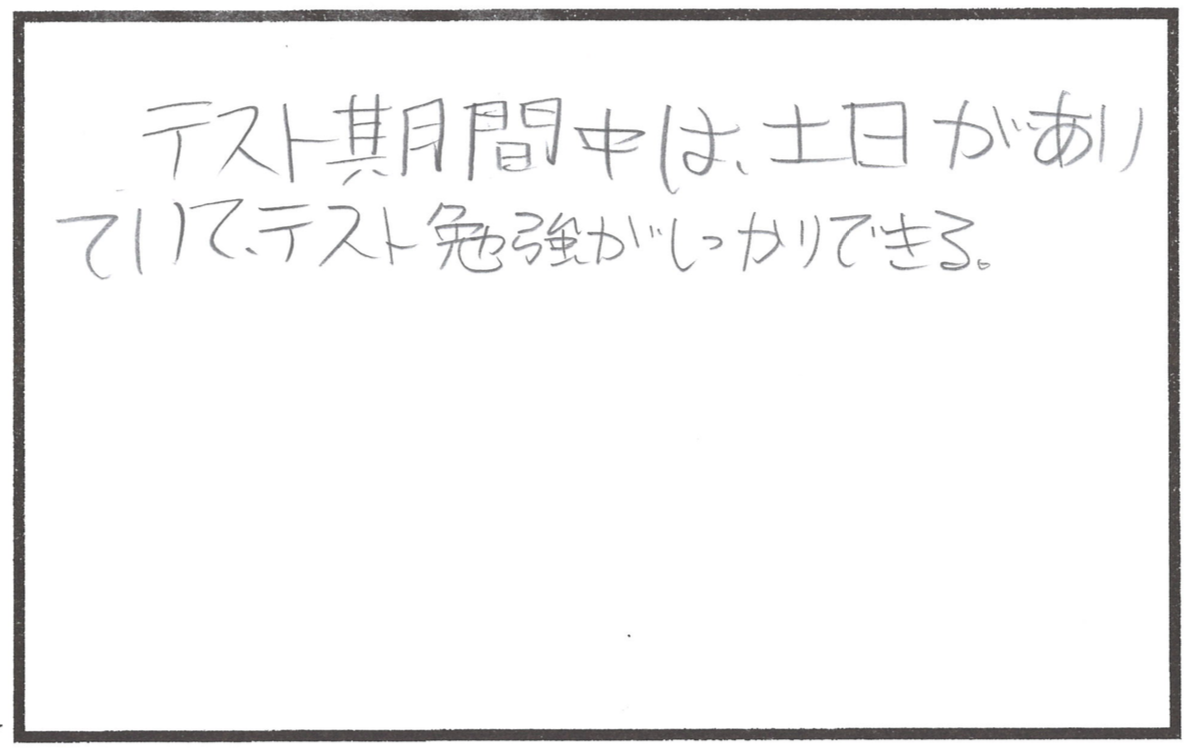 テスト期間中は、土日があり
ていて、テスト勉強がしっかりできる。